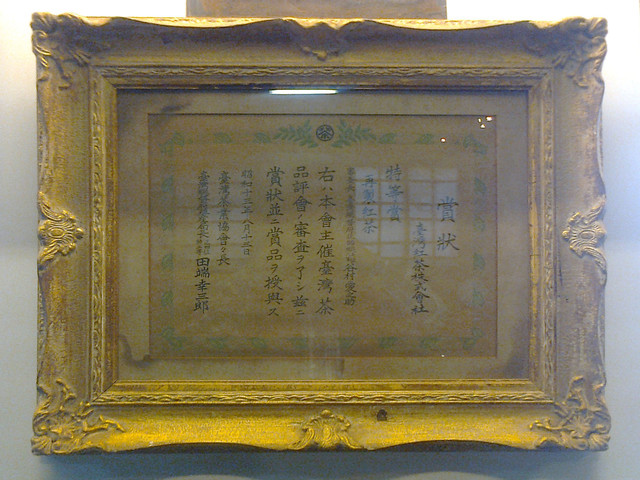 茶
賞狀
臺灣紅茶株式會社
特等賞
再製紅茶
右ハ本會主催臺灣茶
品評會ノ審査ヲ了シ茲ニ
賞狀並ニ賞品ヲ授與ス
昭和十三年八月十三日
臺灣茶業協會々長
田端幸三郎